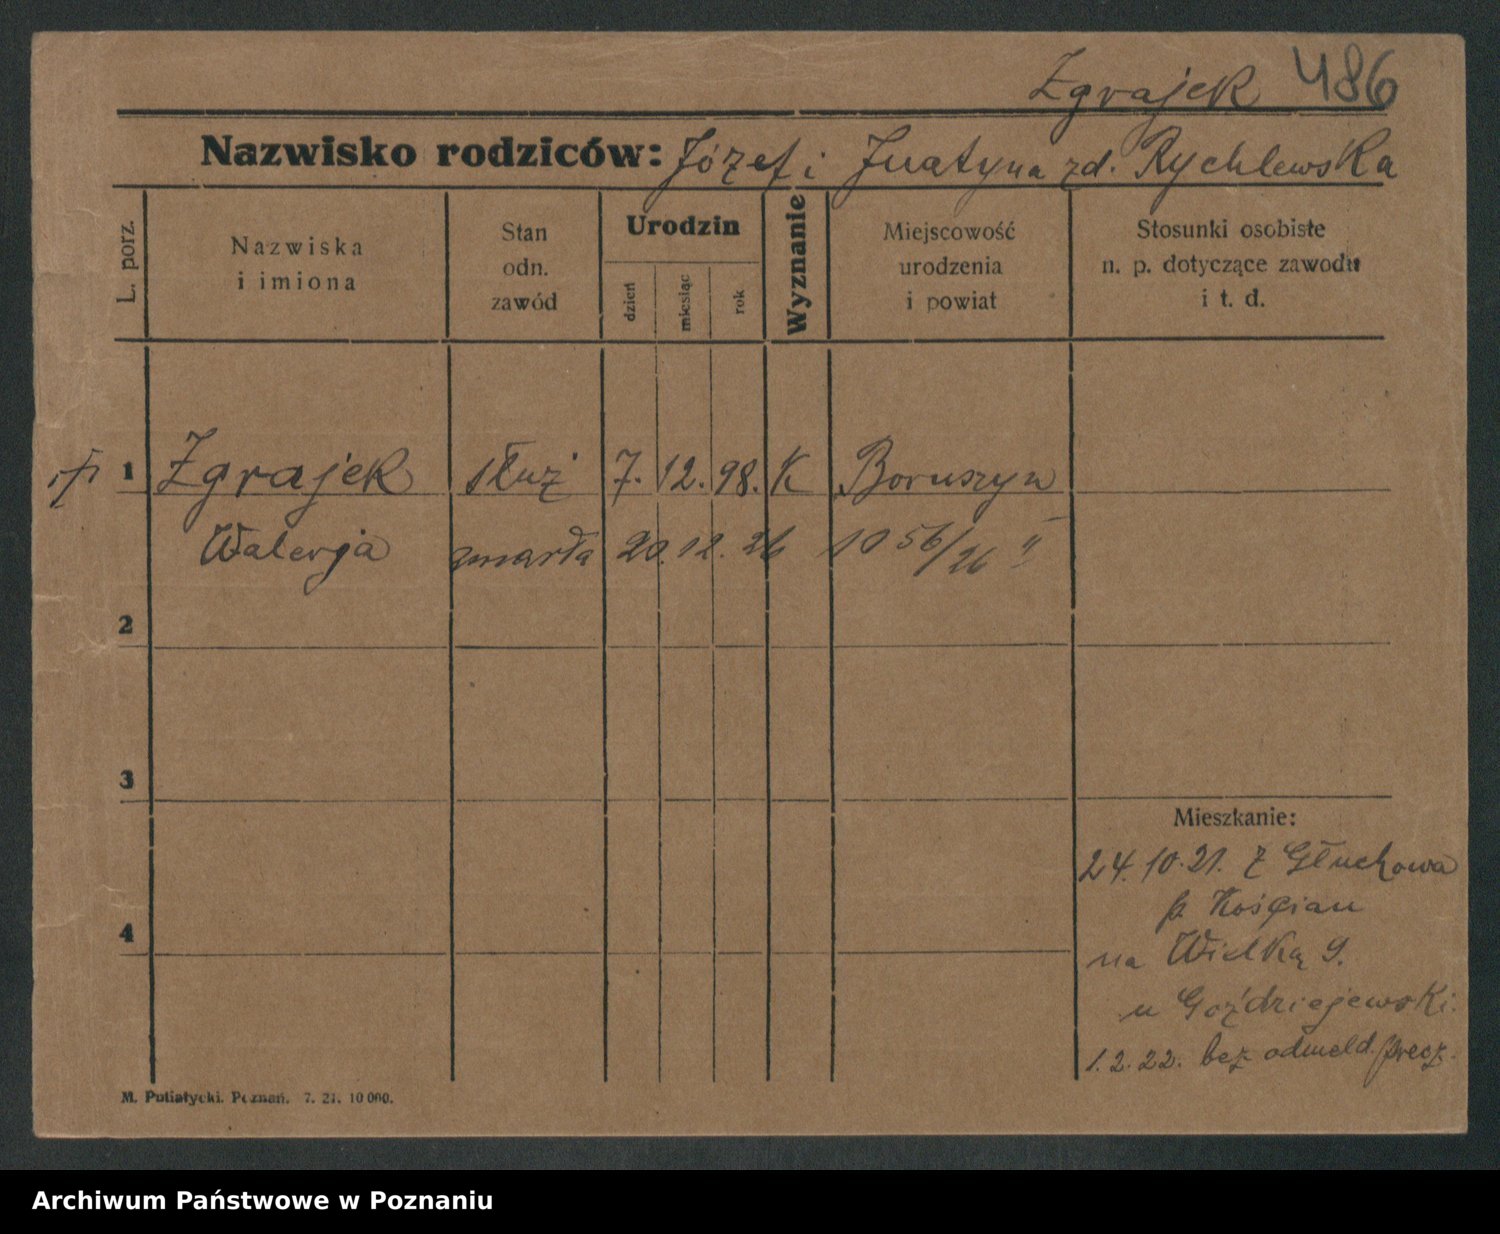 Zgrajek 486
Nazwisko rodziców: Józef i Juatyna zd. Rychlewska
L. porz.
Nazwiska
i imiona
Stan
odn.
zawód
Urodzin
dzień
miesiąc
rok
Wyznanie
Miejscowość
urodzenia
i powiat
Stosunki osobiste
n. p. dotyczące zawodu
i t. d.
1 Zgrajek służ 7. 12. 98. K Boruszyn
Walerja zmarła 20. 12. 26 1056/26 II
2
3
Mieszkanie:
24. 10. 21. z Głuchowa
p. Kościan
4
na Wielką 9.
u Goździejewski.
1. 2. 22. bez odmeld. precz.
M. Putiatycki. Poznań. 7. 21. 10 000.
Archiwum Państwowe w Poznaniu